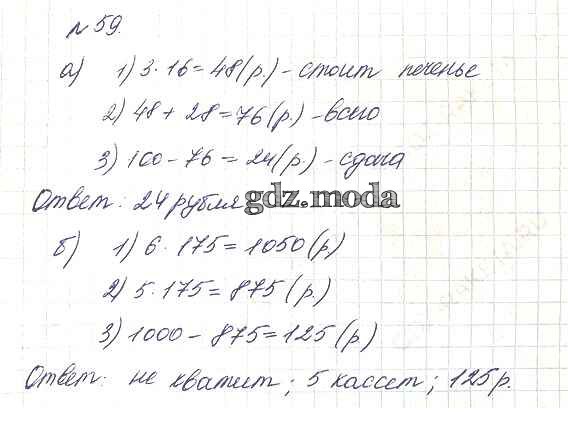 № 59.
а) 1) 3 · 16 = 48 (р.) - стоит печенье
2) 48 + 28 = 76 (р.) - всего
3) 100 - 76 = 24 (р.) - сдача
Ответ: 24 рубля
gdz.moda
б) 1) 6 · 175 = 1050 (р)
2) 5 · 175 = 875 (р.)
3) 1000 - 875 = 125 (р)
Ответ: не хватит; 5 кассет; 125 р.